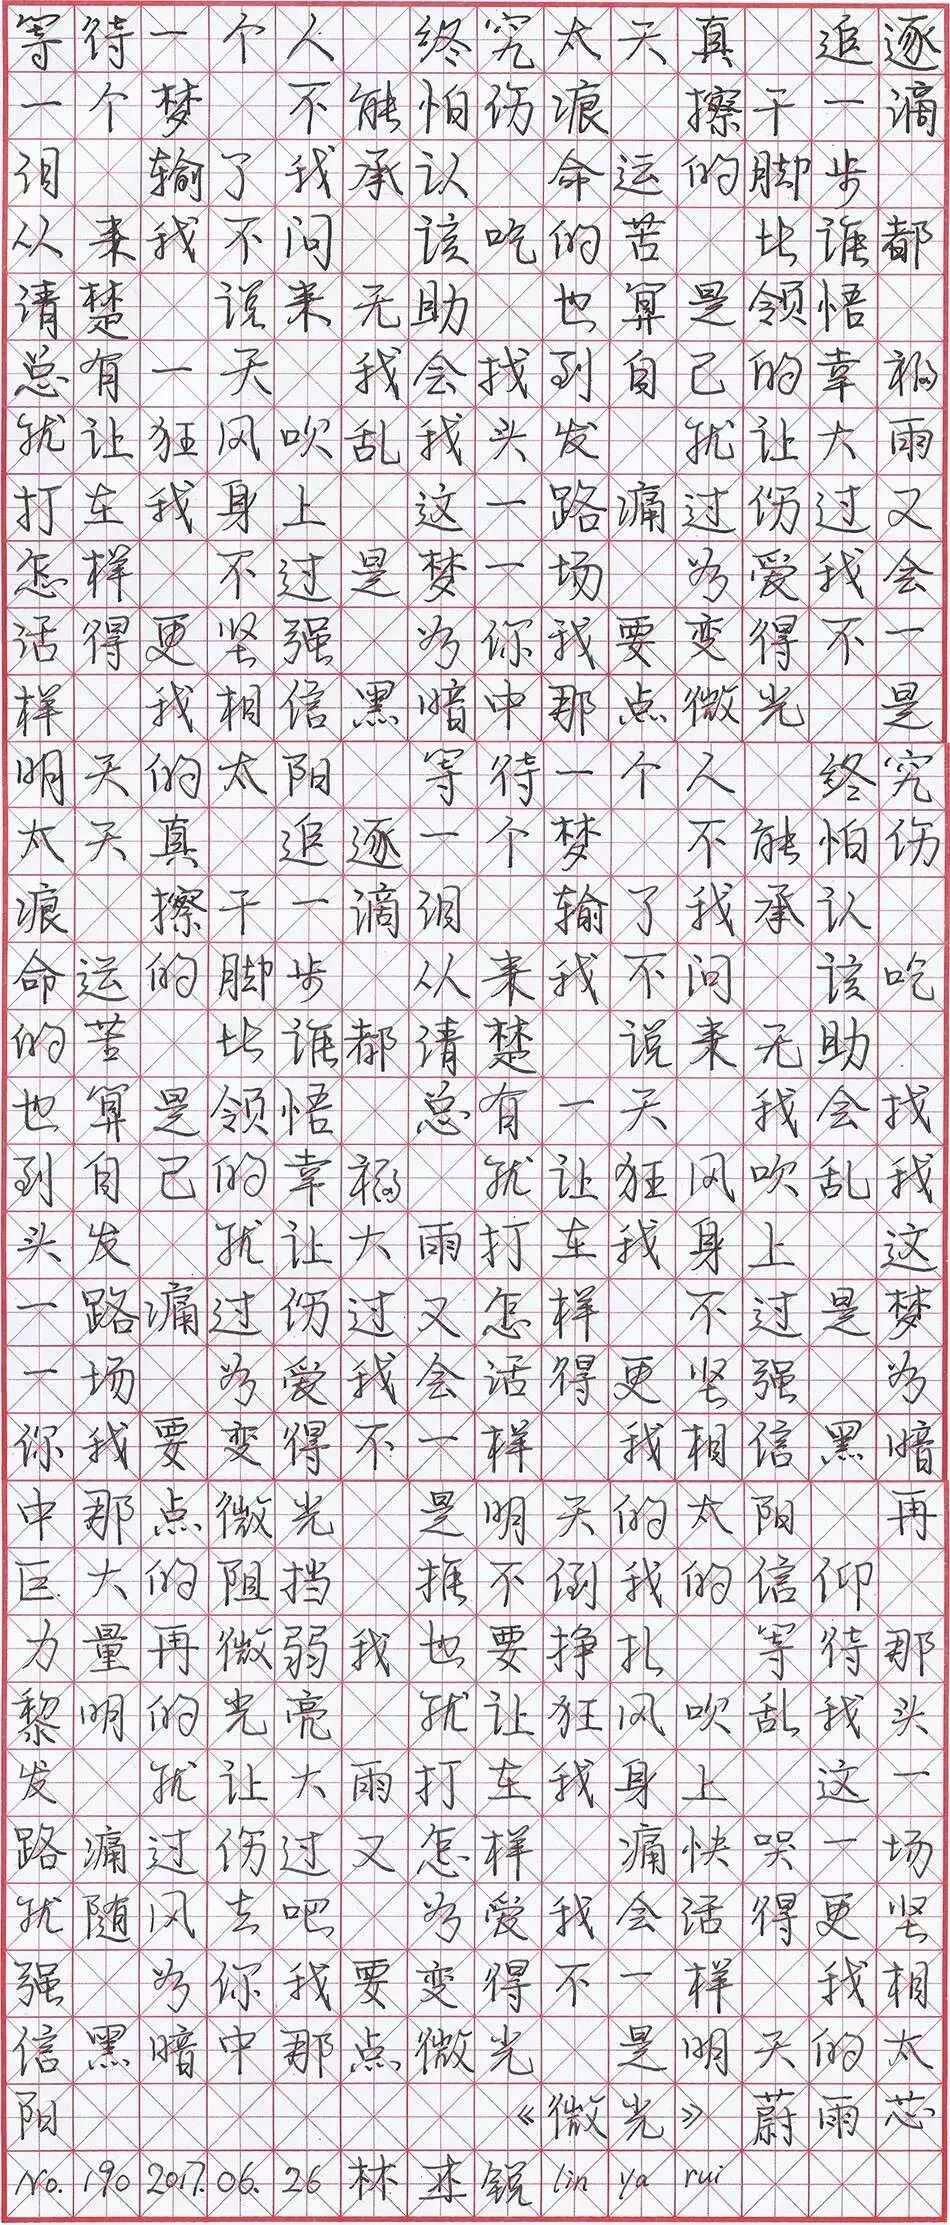 等待一个人 终究太天真 追逐
一个梦 不能怕伤痕 擦干一滴
泪 输了我承认 命运的脚步
从来我不问 该吃的苦 比谁都
清楚 说来无助 也算是领悟
总有一天 我会找到自己的幸福
就让狂风吹乱我头发 就让大雨
打在我身上 这一路痛过伤过又
怎样 不过是梦一场 为爱我会
活得更坚强 为你我要变得不一
样 我相信黑暗中那点微光 是
明天的太阳 等待一个人 终究
太天真 追逐一个梦 不能怕伤
痕 擦干一滴泪 输了我承认
命运的脚步 从来我不问 该吃
的苦 比谁都清楚 说来无助
也算是领悟 总有一天 我会找
到自己的幸福 就让狂风吹乱我
头发 就让大雨打在我身上 这
一路痛过伤过又怎样 不过是梦
一场 为爱我会活得更坚强 为
你我要变得不一样 我相信黑暗
中那点微光 是明天的太阳 再
巨大的阻挡 推不倒我的信仰
力量再微弱我也要挣扎 等待那
黎明的光亮 就让狂风吹乱我头
发 就让大雨打在我身上 这一
路痛过伤过又怎样 痛快哭一场
就随风去吧 为爱我会活得更坚
强 为你我要变得不一样 我相
信黑暗中那点微光 是明天的太
阳 《微光》 蔚雨芯
No. 190 2017.06.26 林亚锐 lin ya rui